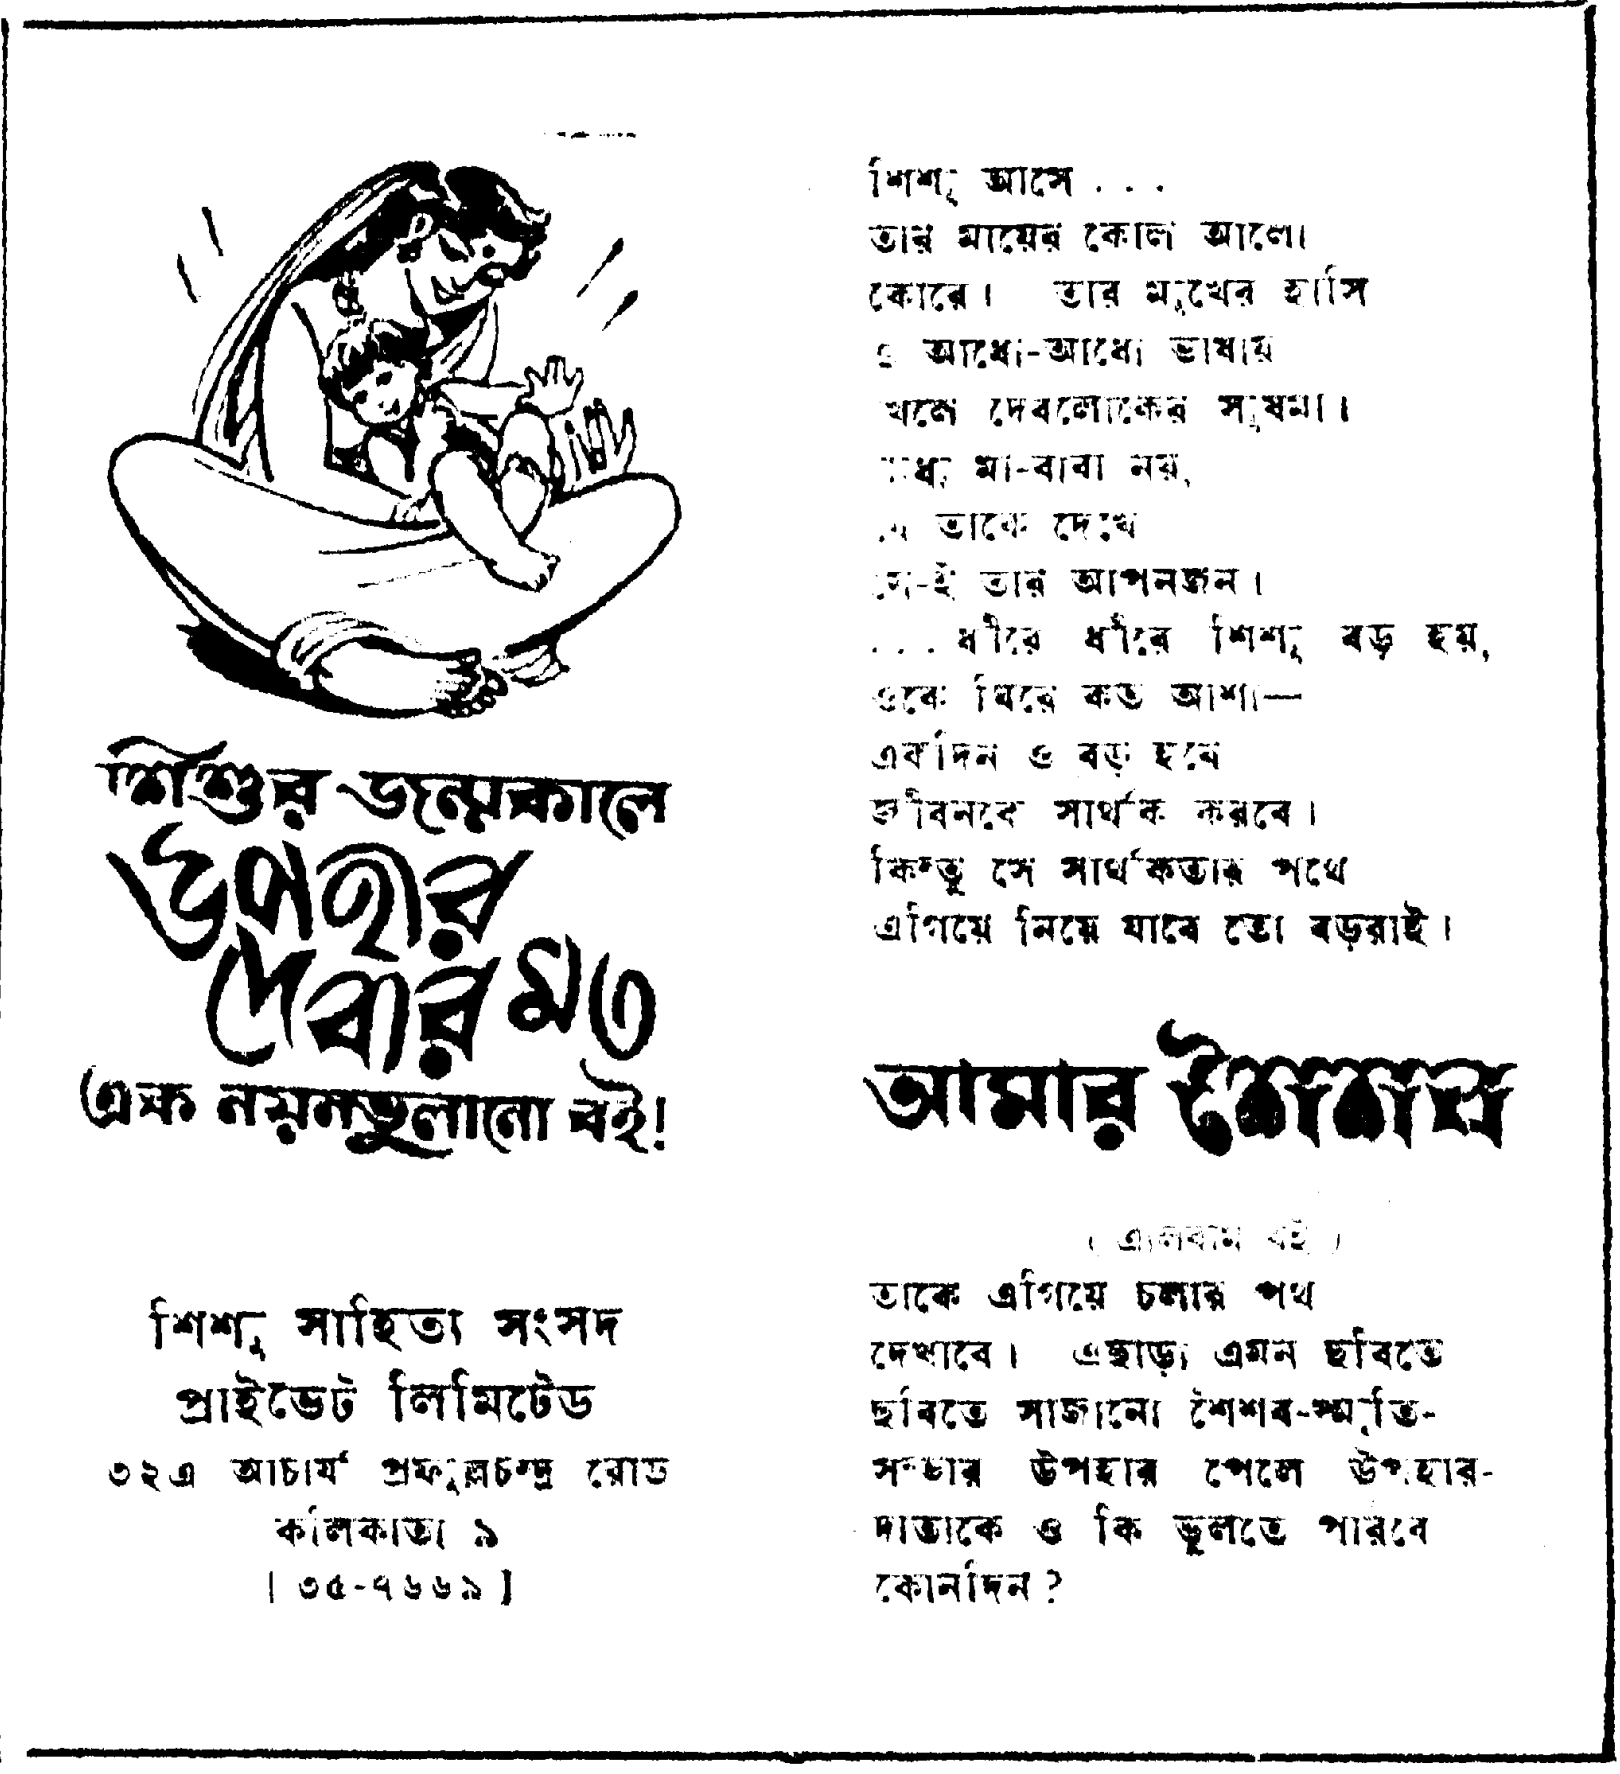 শিশুর জন্মকালে
উপহার
দেবার মত
এক নয়নভুলানো বই!
শিশু সাহিত্য সংসদ
প্রাইভেট লিমিটেড
৩২এ আচার্য প্রফুল্লচন্দ্র রোড
কলিকাতা ৯
[ ৩৫-৭৬৬৯ ]
শিশু আসে . . .
তার মায়ের কোল আলো
কোরে। তার মুখের হাসি
ও আধো-আধো ভাষায়
খেলে দেবলোকের সুষমা।
শুধু মা-বাবা নয়,
যে তাকে দেখে
সে-ই তার আপনজন।
. . . ধীরে ধীরে শিশু বড় হয়,
ওকে ঘিরে কত আশা—
একদিন ও বড় হবে
জীবনকে সার্থক করবে।
কিন্তু সে সার্থকতার পথে
এগিয়ে নিয়ে যাবে তো বড়রাই।
আমার শৈশব
( এ্যালবাম বই )
তাকে এগিয়ে চলার পথ
দেখাবে। এছাড়া এমন ছবিতে
ছবিতে সাজানো শৈশব-স্মৃতি-
সম্ভার উপহার পেলে উপহার-
দাতাকে ও কি ভুলতে পারবে
কোনদিন?